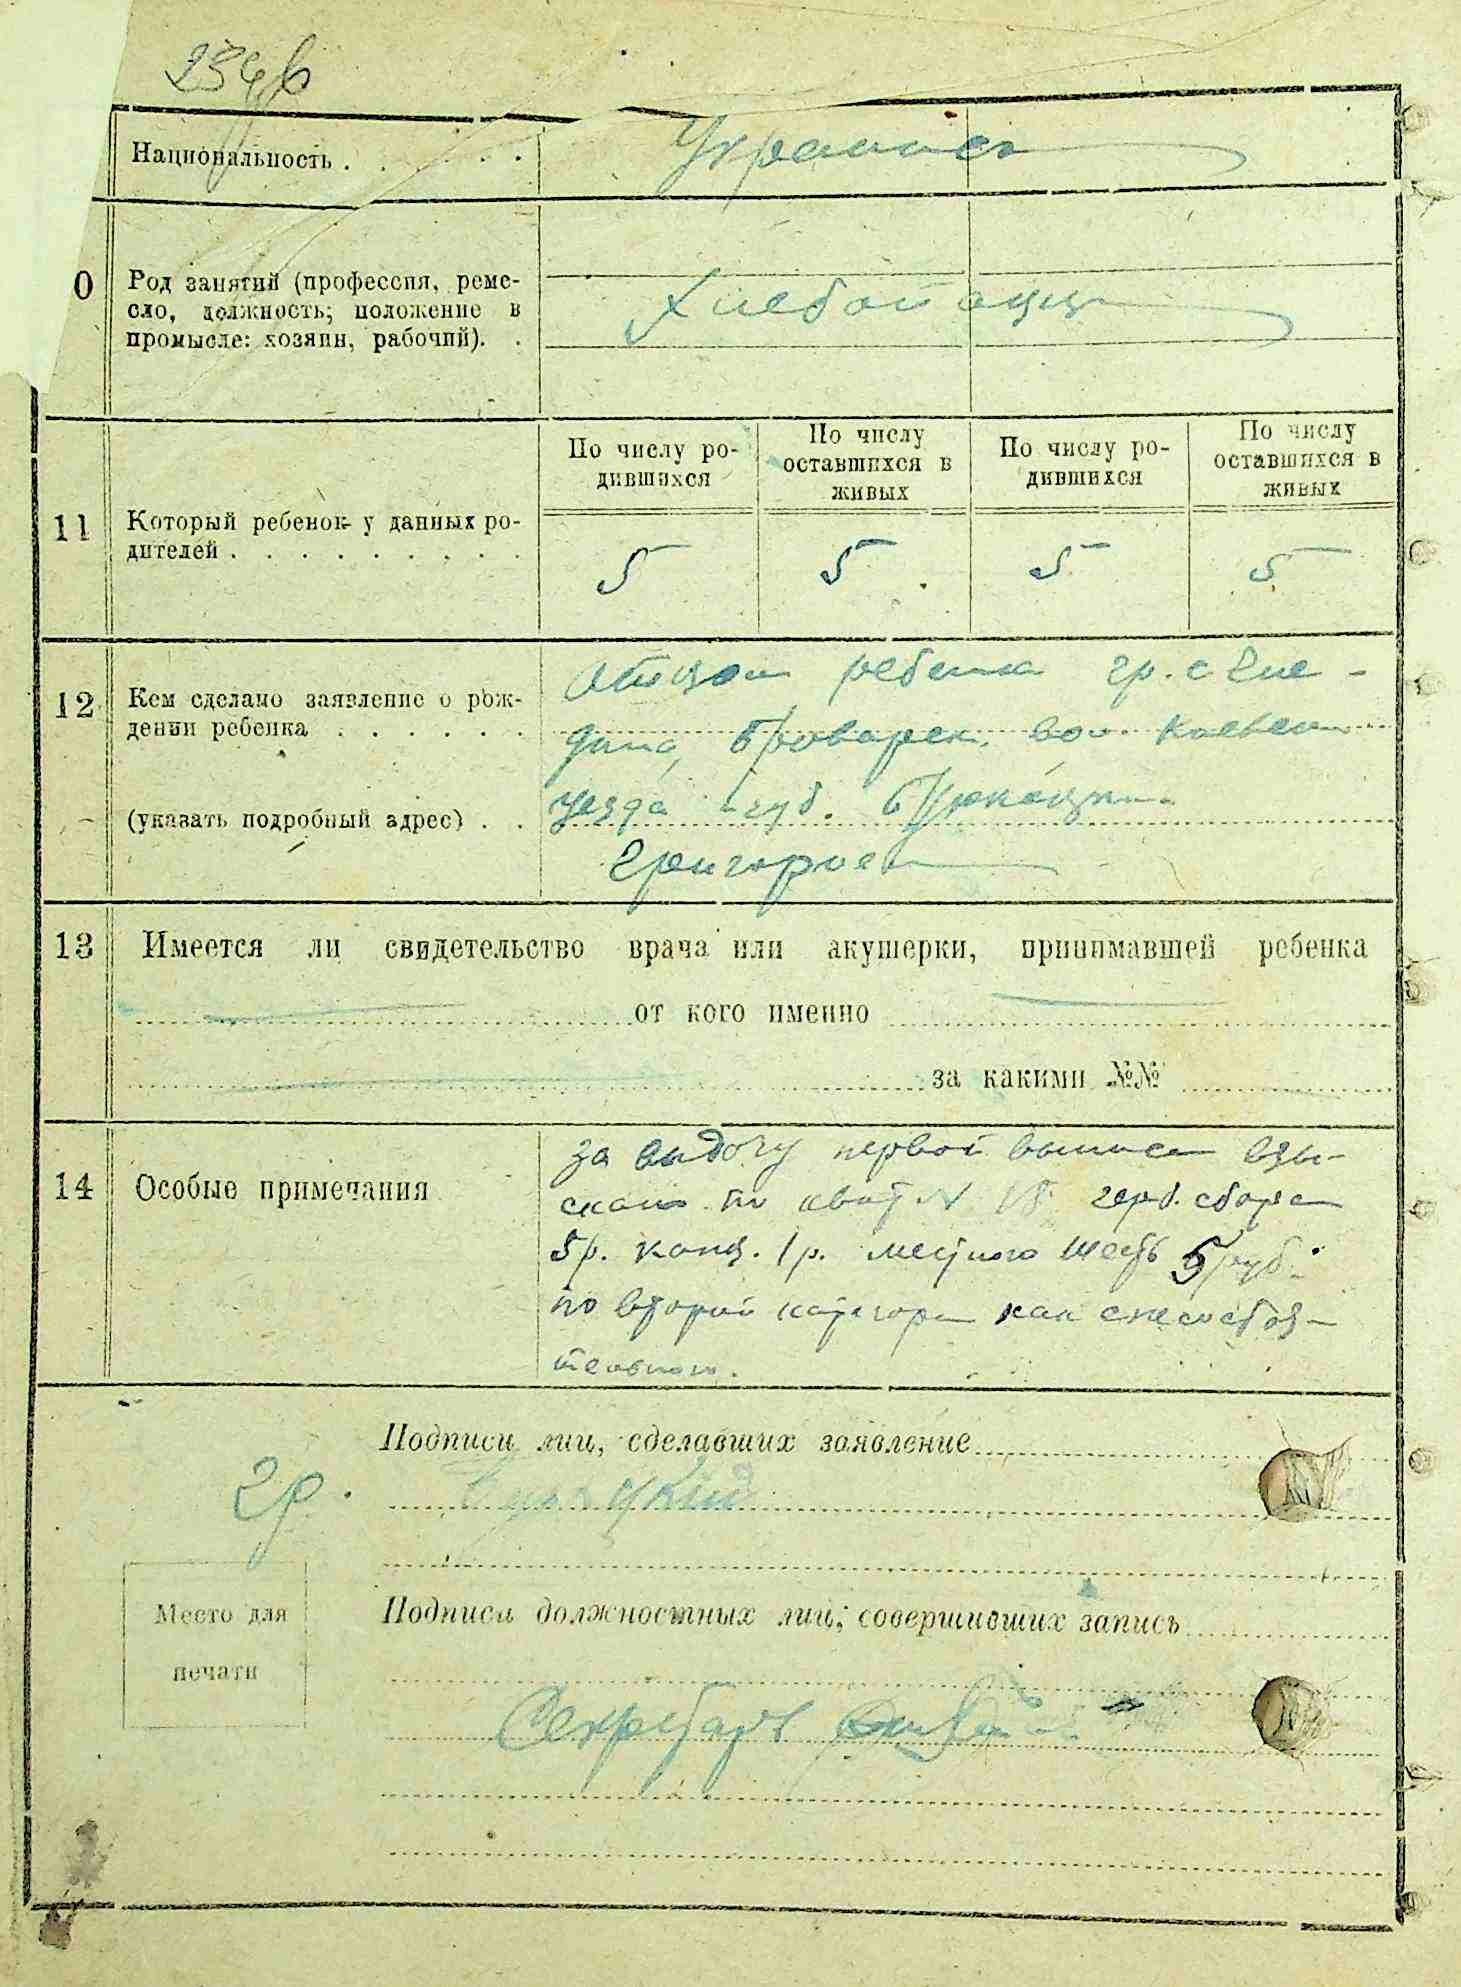 Национальность . . . . .
Украинец
0
Род занятий (профессия, реме-
сло, должность; положение в
промысле: хозяин, рабочий). .
Хлебопашц
По числу ро-
дившихся
По числу
оставшихся в
живых
По числу ро-
дившихся
По числу
оставшихся в
живых
11
Который ребенок у данных ро-
дителей . . . . . . . . .
5 5 5 5
12
Кем сделано заявление о рож-
дении ребенка . . . . . .
(указать подробный адрес) . .
отцом ребенка гр. с
Броварск. вол. Киевск
уезда губ.
Григорием
13
Имеется ли свидетельство врача или акушерки, принимавшей ребенка
от кого именно
за какими №№
14
Особые примечания
за выдачу первой выписи взы-
скано по квит N герб. сбора
5 р. канц. 1 р. местного 5 руб.
по второй категории как
Подписи лиц, сделавших заявление
2 р.
Место для
печати
Подписи должностных лиц; совершивших запись
Секретарь